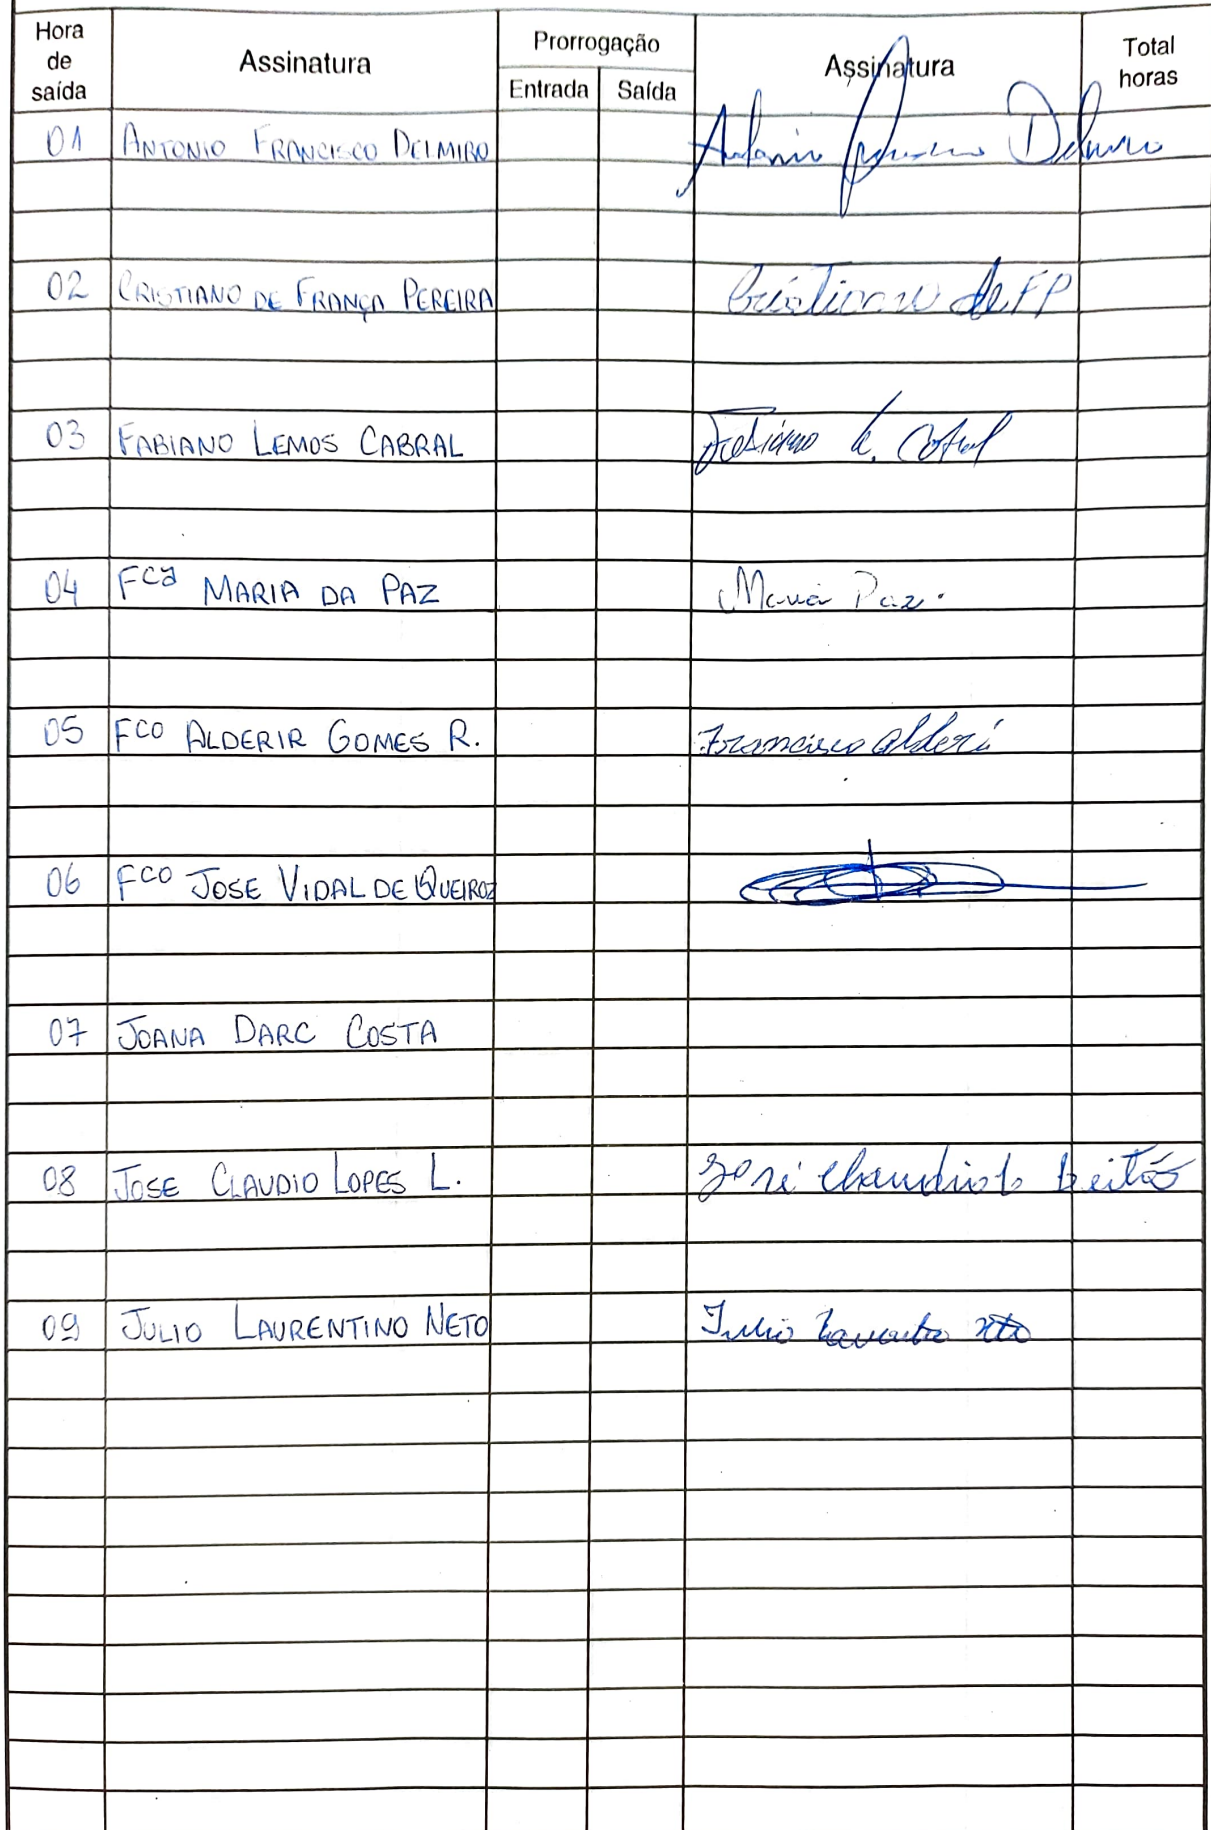 Hora de saída Assinatura Prorrogação Entrada Saída Assinatura Total horas
01 ANTONIO FRANCISCO DELMIRO Antonio Francisco Delmiro
02 CRISTIANO DE FRANÇA PEREIRA Cristiano de FP
03 FABIANO LEMOS CABRAL Fabiano L. Cabral
04 Fca MARIA DA PAZ Maria Paz.
05 Fco ALDERIR GOMES R. Francisco Alderi
06 Fco JOSE VIDAL DE QUEIROZ
07 JOANA DARC COSTA
08 JOSE CLAUDIO LOPES L. José Claudio Leitão
09 JULIO LAURENTINO NETO Julio